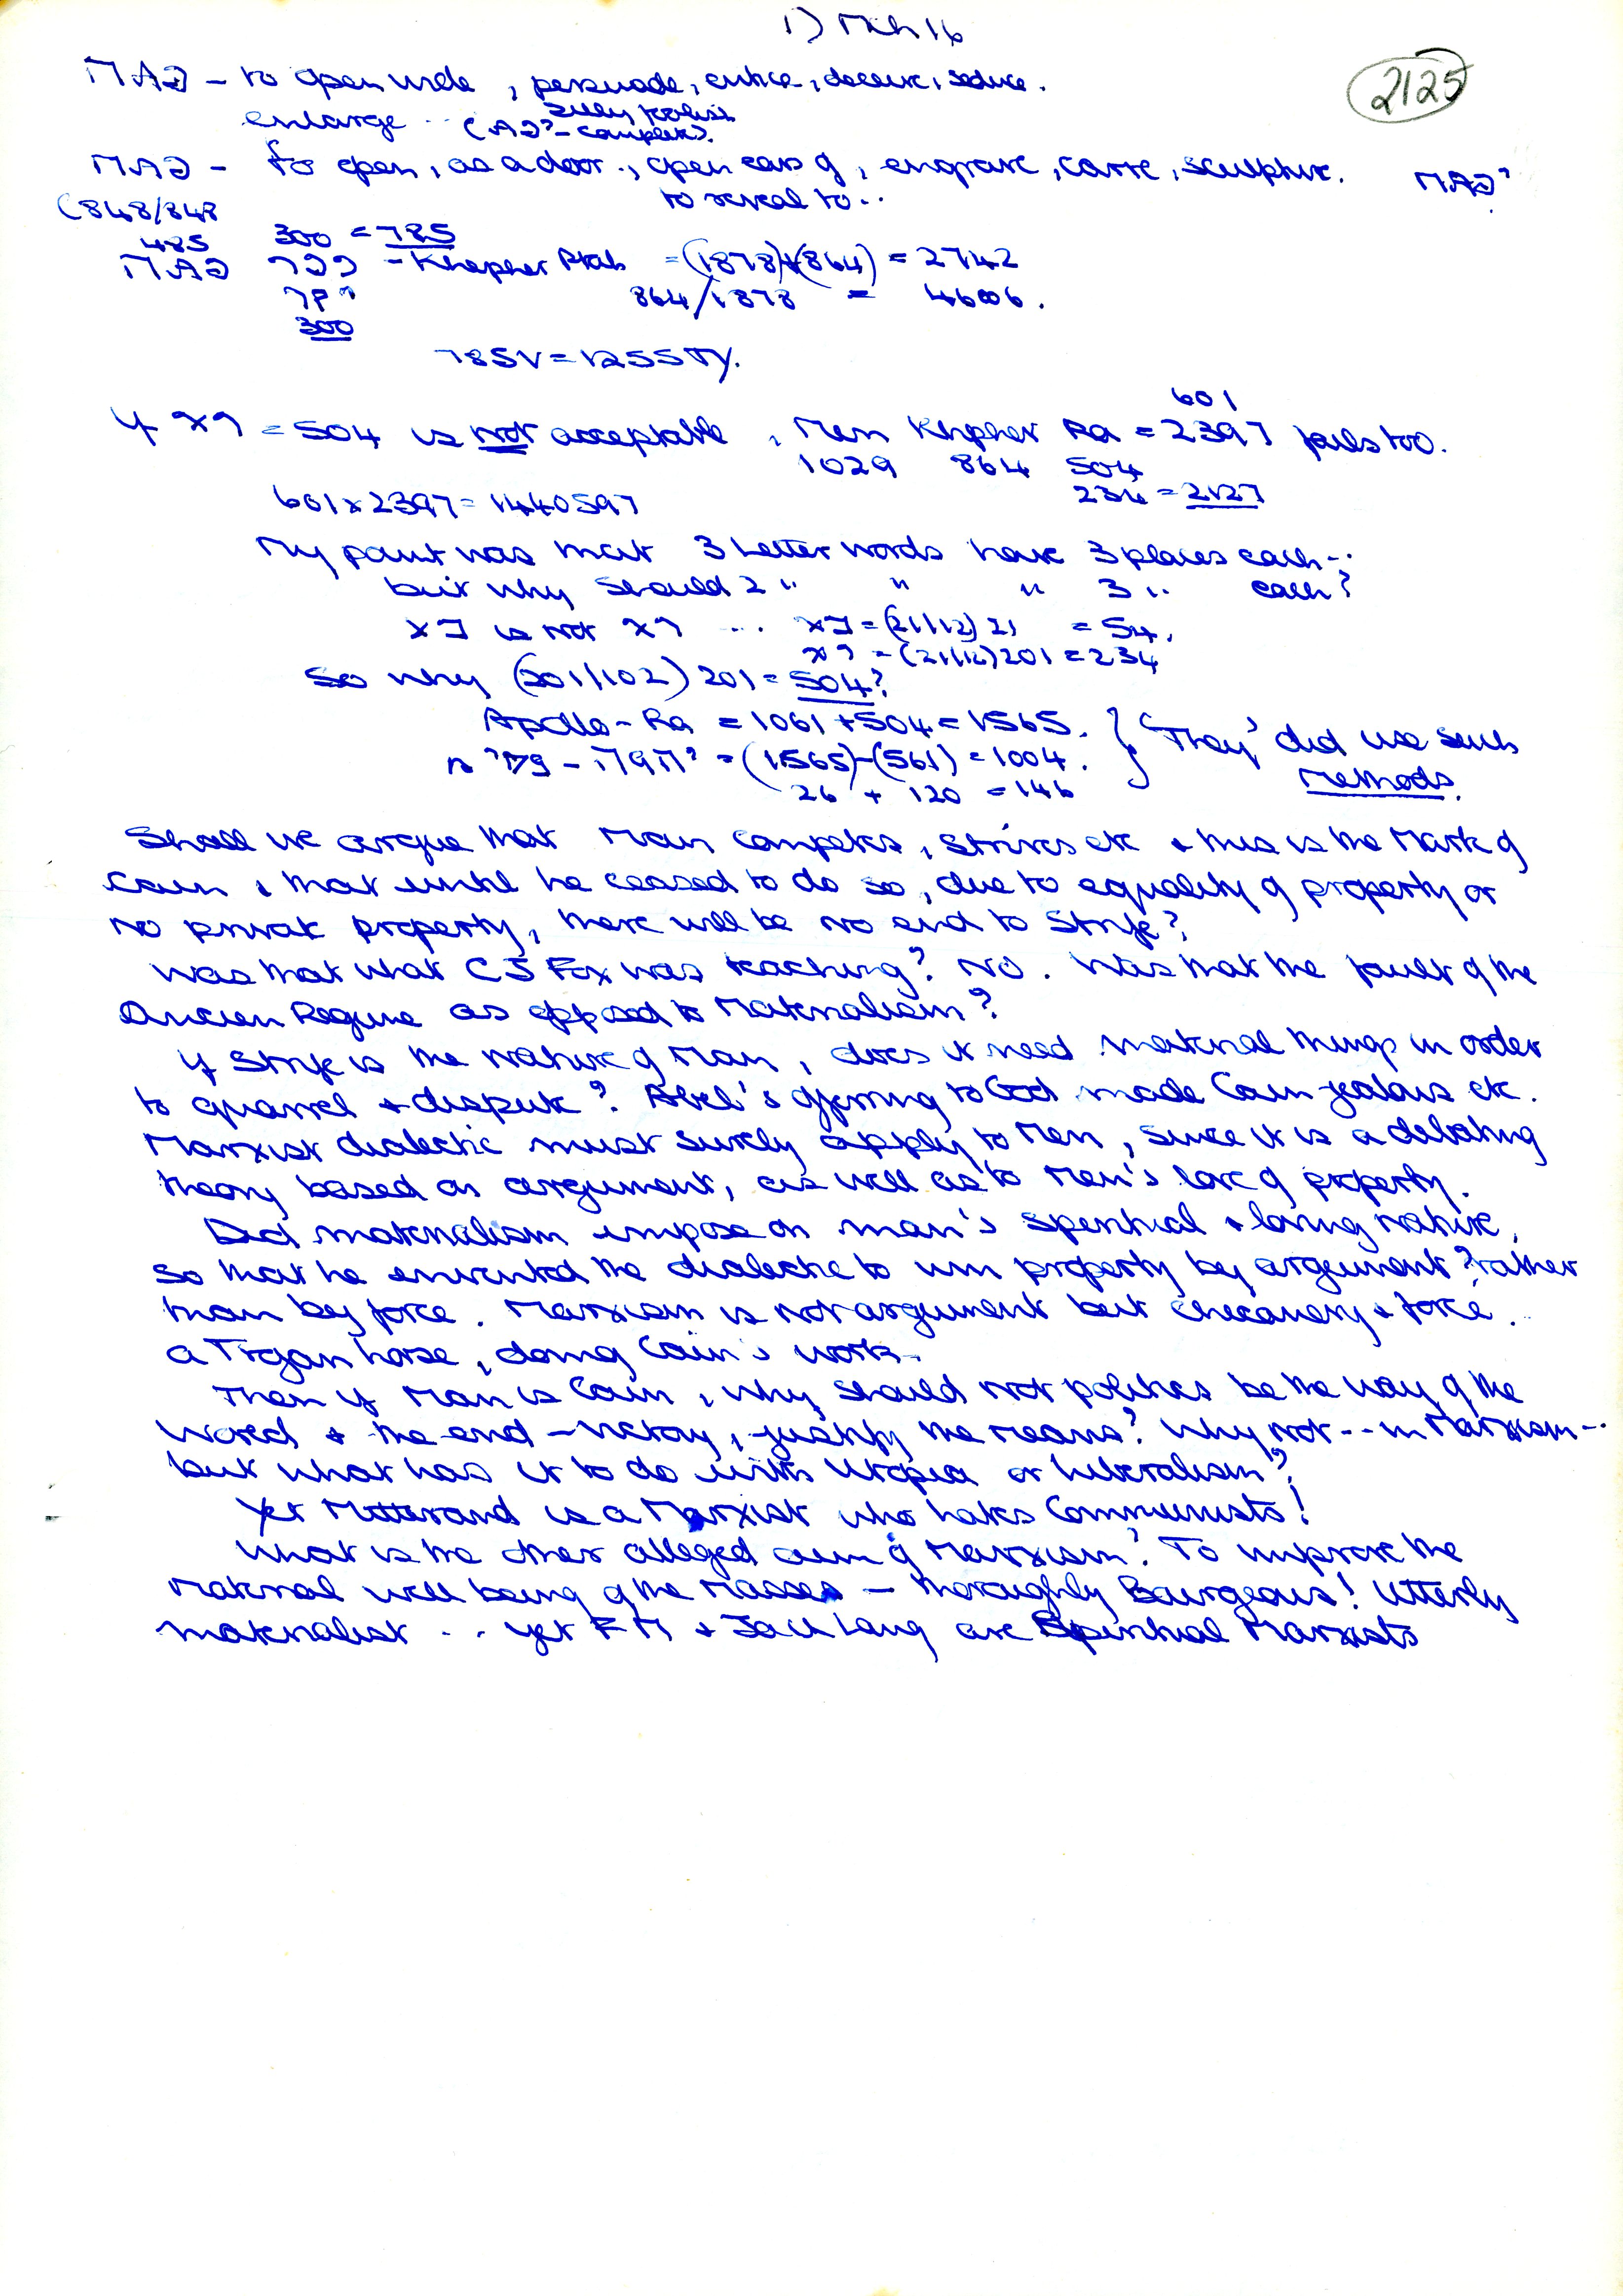 1) Mch 16
2125
פתה - to open wide, persuade, entice, deceive, seduce.
enlarge .. silly foolish
פתח - to open, as a door .., open ears of, engrave, carve, sculpture.
to reveal to ..
(848/848
485 300 = 785
- Khepher Ptah = (1878)+(864) = 2742
864/1878 = 4606.
300
785V = 1255TY.
601
If רא = 504 is not acceptable, then Khepher Ra = 2397 fails too.
1029 864 504
601 x 2397 = 1440597
234 = 2127
My point was that 3 letter words have 3 places each ..
but why should 2 " " " 3 " each?
is not רא ... = (21/12) 21 = 54.
רא = (21/12) 201 = 234
So why (201/102) 201 = 504?
Apollo - Ra = 1061 + 504 = 1565. } 'They' did use such
= (1565)-(561) = 1004. methods.
26 + 120 = 146
Shall we argue that Man competes, strives etc + this is the Mark of
Cain, + that until he ceased to do so, due to equality of property or
no private property, there will be no end to strife?
Was that what CJ Fox was teaching? No. Was that the fault of the
Ancien Regime as opposed to Materialism?
If strife is the nature of Man, does it need material things in order
to quarrel + dispute? Abel's offering to God made Cain jealous etc.
Marxist dialectic must surely apply to Men, since it is a debating
theory based on argument, as well as to Men's love of property.
Did materialism impose on man's spiritual + loving nature,
so that he invented the dialectic to win property by argument? rather
than by force. Marxism is not argument but chicanery + force.
a Trojan horse, doing Cain's work.
Then if Man is Cain, why should not politics be the way of the
World + the end - victory, justify the means? Why not .. in Marxism ..
but what has it to do with Utopia or Liberalism?
Yet Mitterand is a Marxist who hates Communists!
What is the other alleged aim of Marxism? To improve the
material well being of the Masses - thoroughly Bourgeous! Utterly
materialist ... yet F M + Jack Lang are Spiritual Marxists